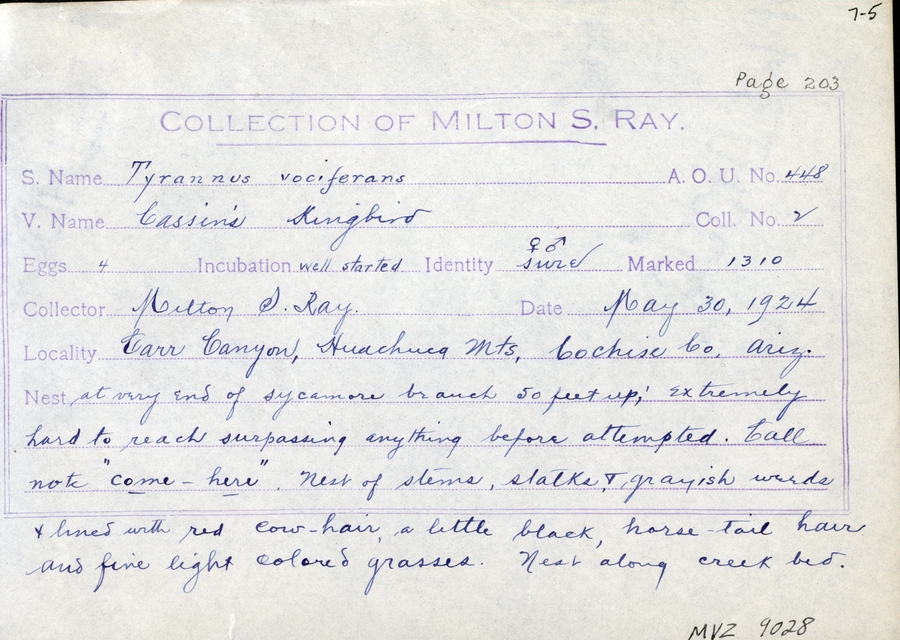 7-5
Page 203
COLLECTION OF MILTON S. RAY.
S. Name Tyrannus vociferans A. O. U. No. 448
V. Name Cassin's Kingbird Coll. No. 2
♀ ♂
Eggs 4 Incubation well started Identity sure Marked 1310
Collector Milton S. Ray. Date May 30, 1924
Locality Carr Canyon, Huachuca Mts, Cochise Co, Ariz.
Nest at very end of sycamore branch 50 feet up; extremely
hard to reach surpassing anything before attempted. Call
note "come-here". Nest of stems, stalks & grayish weeds
& lined with red cow-hair, a little black, horse-tail hair
and fine light colored grasses. Nest along creek bed.
MVZ 9028